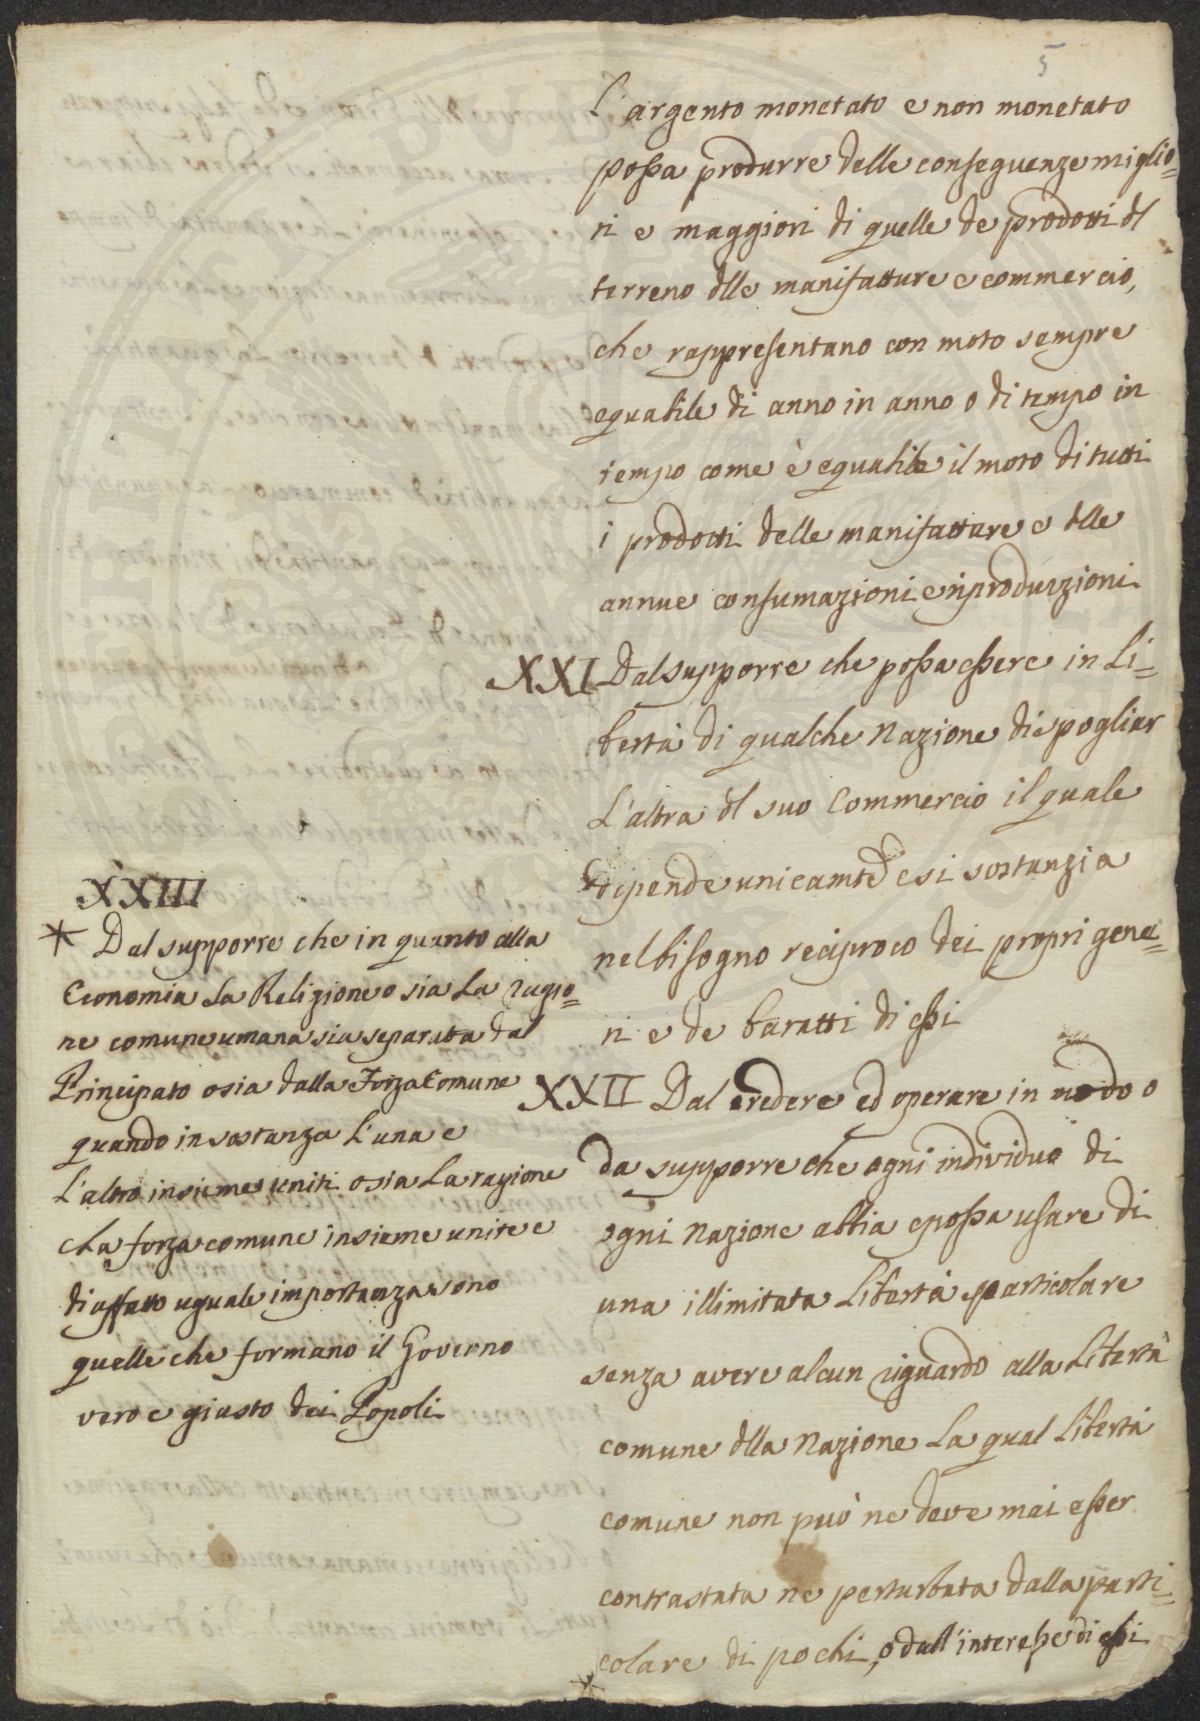 5
L'argento monetato e non monetato
possa produrre delle conseguenze miglio=
ri e maggiori di quelle de prodotti dl
terreno dlle manifatture e commercio,
che rappresentano con moto sempre
equabile di anno in anno o di tempo in
tempo come è equabile il moto di tutti
i prodotti delle manifatture e dlle
annue consumazioni e riproduzzioni
XXI Dal supporre che possa essere in Li=
bertà di qualche Nazione di spogliar
L'altra dl suo Commercio il quale
dipende unicamte e si sostanzia
nel bisogno reciproco dei propri gene=
ri e de baratti di essi
XXII Dal credere ed operare in modo o
da supporre che ogni individuo di
ogni Nazione abbia e possa usare di
una illimitata Libertà particolare
senza avere alcun riguardo alla Libertà
comune dlla Nazione La qual Libertà
comune non può ne deve mai esser
contrastata ne perturbata dalla parti=
colare di pochi, o dall'interesse di essi
*
XXIII
* Dal supporre che in quanto alla
Economia La Religione o sia La ragio=
ne comune umana sia separata dal
Principato o sia dalla Forza Comune
quando in sostanza L'una e
L'altro insieme uniti o sia La ragione
e La forza comune insieme unite e
di affatto uguale importanza sono
quelle che formano il Governo
vero e giusto dei Popoli